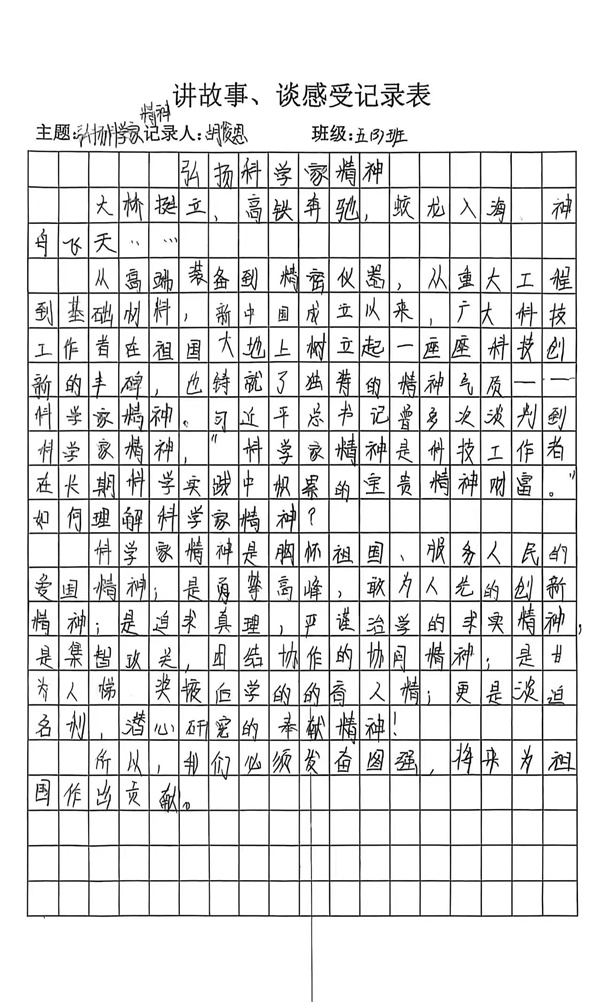 讲故事、谈感受记录表
主题:弘扬科学家精神 记录人:胡俊恩 班级:五(3)班
弘扬科学家精神
大桥挺立,高铁奔驰,蛟龙入海,神
舟飞天……
从高端装备到精密仪器,从重大工程
到基础材料,新中国成立以来,广大科技
工作者在祖国大地上树立起一座座科技创
新的丰碑,也铸就了独特的精神气质——
科学家精神。习近平总书记曾多次谈判到
科学家精神,“科学家精神是科技工作者
在长期科学实践中积累的宝贵精神财富。”
如何理解科学家精神?
科学家精神是胸怀祖国、服务人民的
爱国精神;是勇攀高峰,敢为人先的创新
精神;是追求真理,严谨治学的求实精神,
是集智攻关,团结协作的协同精神;是甘
为人梯 奖掖后学的的育人精;更是淡迫
名利,潜心研究的奉献精神!
所以,我们必须发奋图强,将来为祖
国作出贡献。